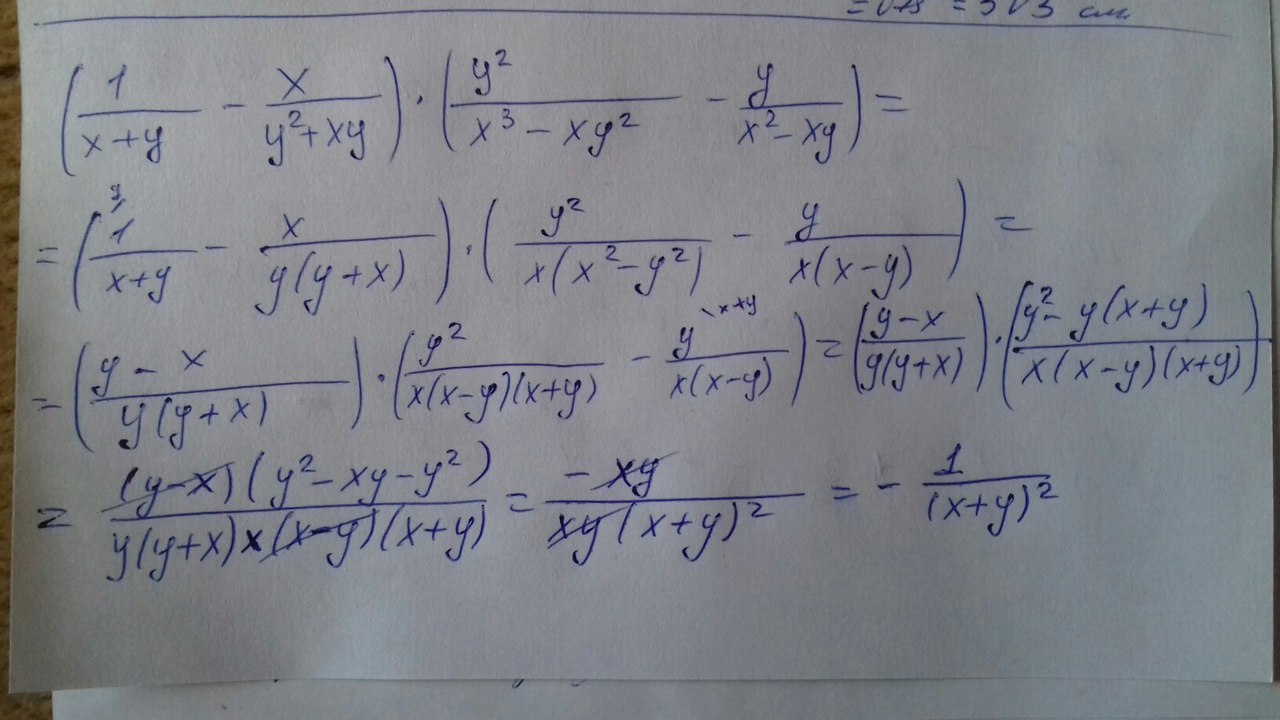 = 3√3 см.
(1/(x+y) - x/(y²+xy)) · (y²/(x³-xy²) - y/(x²-xy)) =
= (1/(x+y) - x/(y(y+x))) · (y²/(x(x²-y²)) - y/(x(x-y))) =
= ((y-x)/(y(y+x))) · (y²/(x(x-y)(x+y)) - y\x+y/(x(x-y))) = ((y-x)/(y(y+x))) · ((y²-y(x+y))/(x(x-y)(x+y)))
= ((y-x)(y²-xy-y²))/(y(y+x)x(x-y)(x+y)) = -xy/(xy(x+y)²) = - 1/(x+y)²